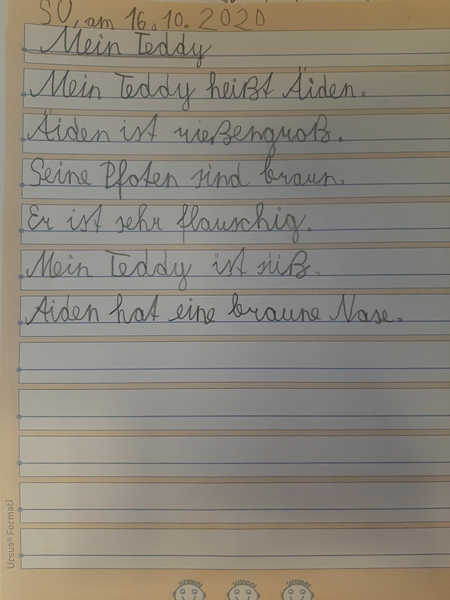 SU, am 16.10.2020
Mein Teddy
Mein Teddy heißt Äiden.
Äiden ist rießengroß.
Seine Pfoten sind braun.
Er ist sehr flauschig.
Mein Teddy ist süß.
Aiden hat eine braune Nase.
Ursus® Formati